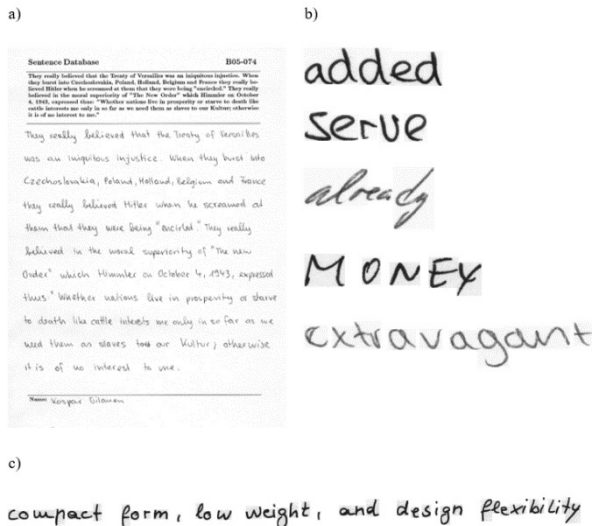 a)
b)
Sentence Database B05-074
They really believed that the Treaty of Versailles was an iniquitous injustice. When
they burst into Czechoslovakia, Poland, Holland, Belgium and France they really be-
lieved Hitler when he screamed at them that they were being "encircled." They really
believed in the moral superiority of "The New Order" which Himmler on October
4, 1943, expressed thus: "Whether nations live in prosperity or starve to death like
cattle interests me only in so far as we need them as slaves to our Kultur; otherwise
it is of no interest to me."
They really believed that the Treaty of Versailles
was an iniquitous injustice. When they burst into
Czechoslovakia, Poland, Holland, Belgium and France
they really believed Hitler when he screamed at
them that they were being "encircled." They really
believed in the moral superiority of "The New
Order" which Himmler on October 4, 1943, expressed
thus: "Whether nations live in prosperity or starve
to death like cattle interests me only in so far as we
need them as slaves to our Kultur; otherwise
it is of no interest to me.
Name:
added
serve
already
MONEY
extravagant
c)
compact form, low weight, and design flexibility